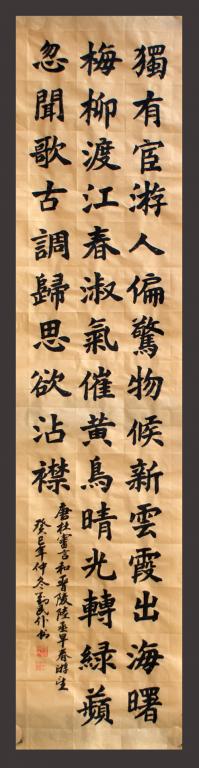 獨有宦游人偏驚物候新雲霞出海曙
梅柳渡江春淑氣催黃鳥晴光轉綠蘋
忽聞歌古調歸思欲沾襟
唐杜審言和晉陵陸丞早春游望
癸巳年仲冬